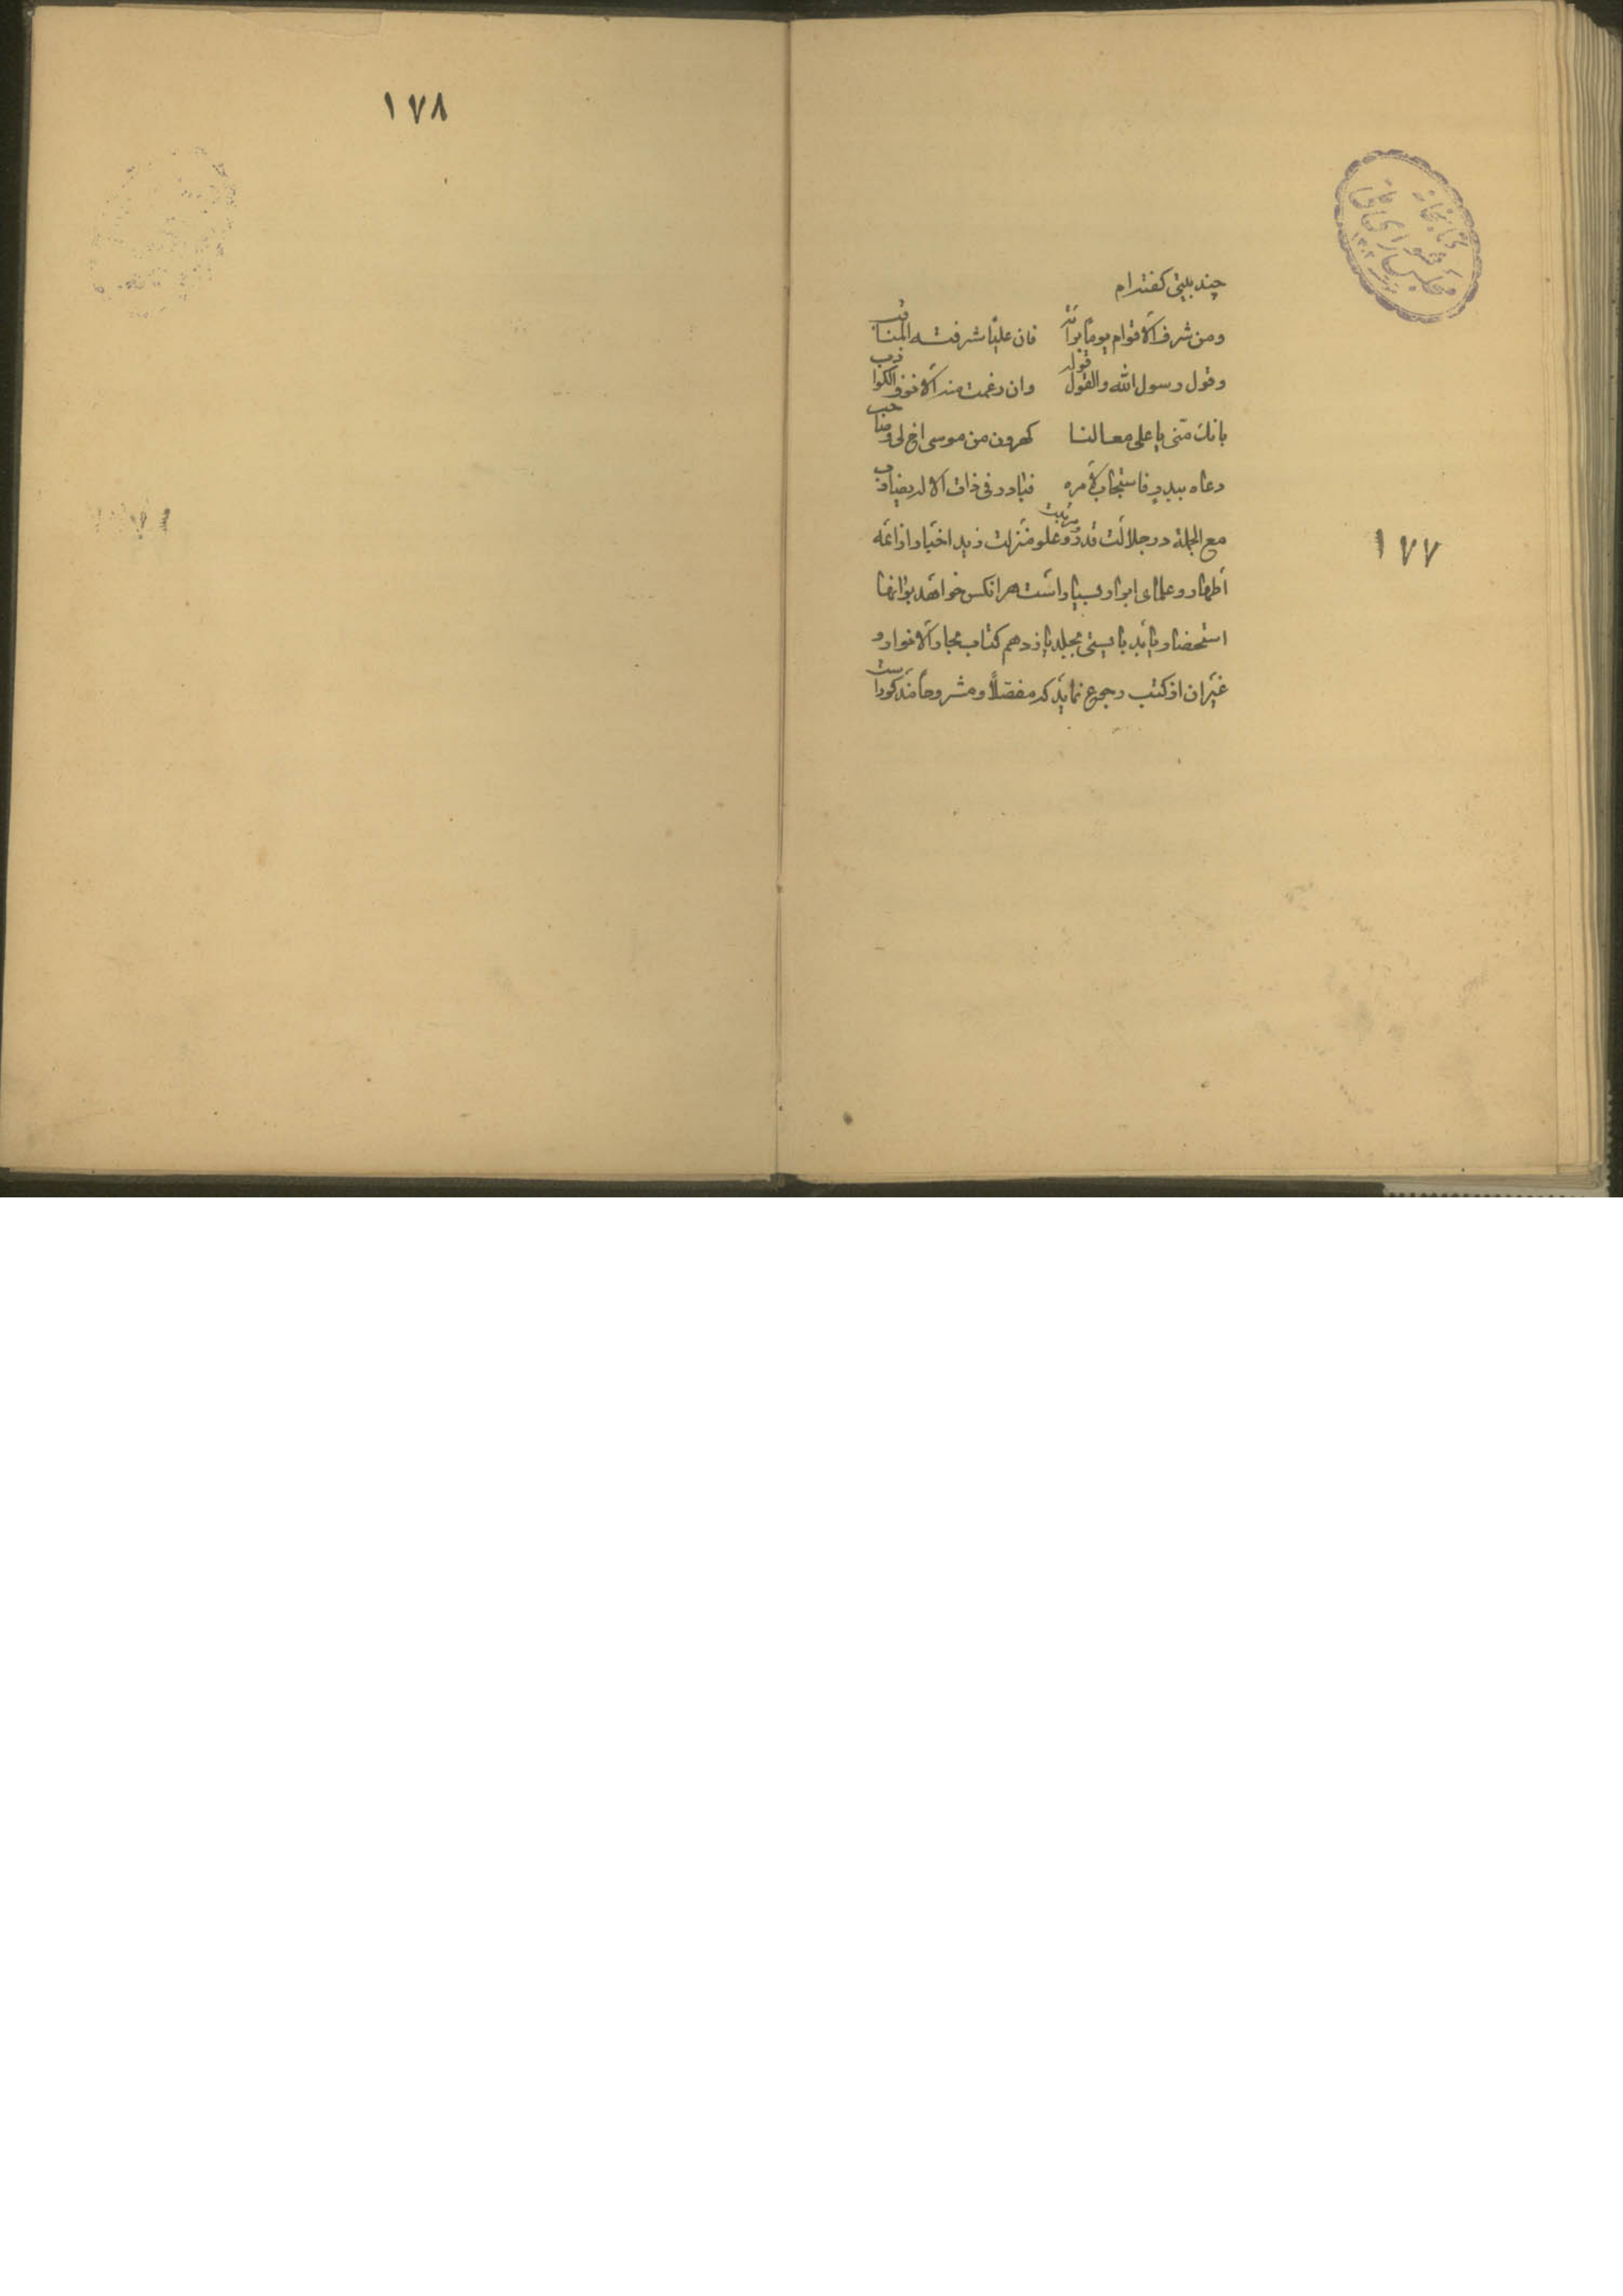 چند بیتی گفته‌ام
ومن شرف الاقوام یوماً برایه فان علیاً شرفته المناقب
وقول رسول الله والقول قوله وان رغمت منه الانوف الکواذب
بانك منّی یا علی معالنا کهرون من موسی اخ لی وصاحب
دعاه ببدر فاستجاب لامره فبادر فی ذات الاله یضارب
مع الجمله در جلالت قدر و علو منزلت زید اخبار از ائمّه
اطهار و علمای ابرار بسیار است هرانکس خواهد بر انها
استحضار یابد بایستی بجلد یازدهم کتاب بحار الانوار و
غیر ان از کتب رجوع نماید که مفصلاً و مشروحاً مذکور است
۱۷۷
کتابخانه
مجلس شورای ملی
۱۷۸